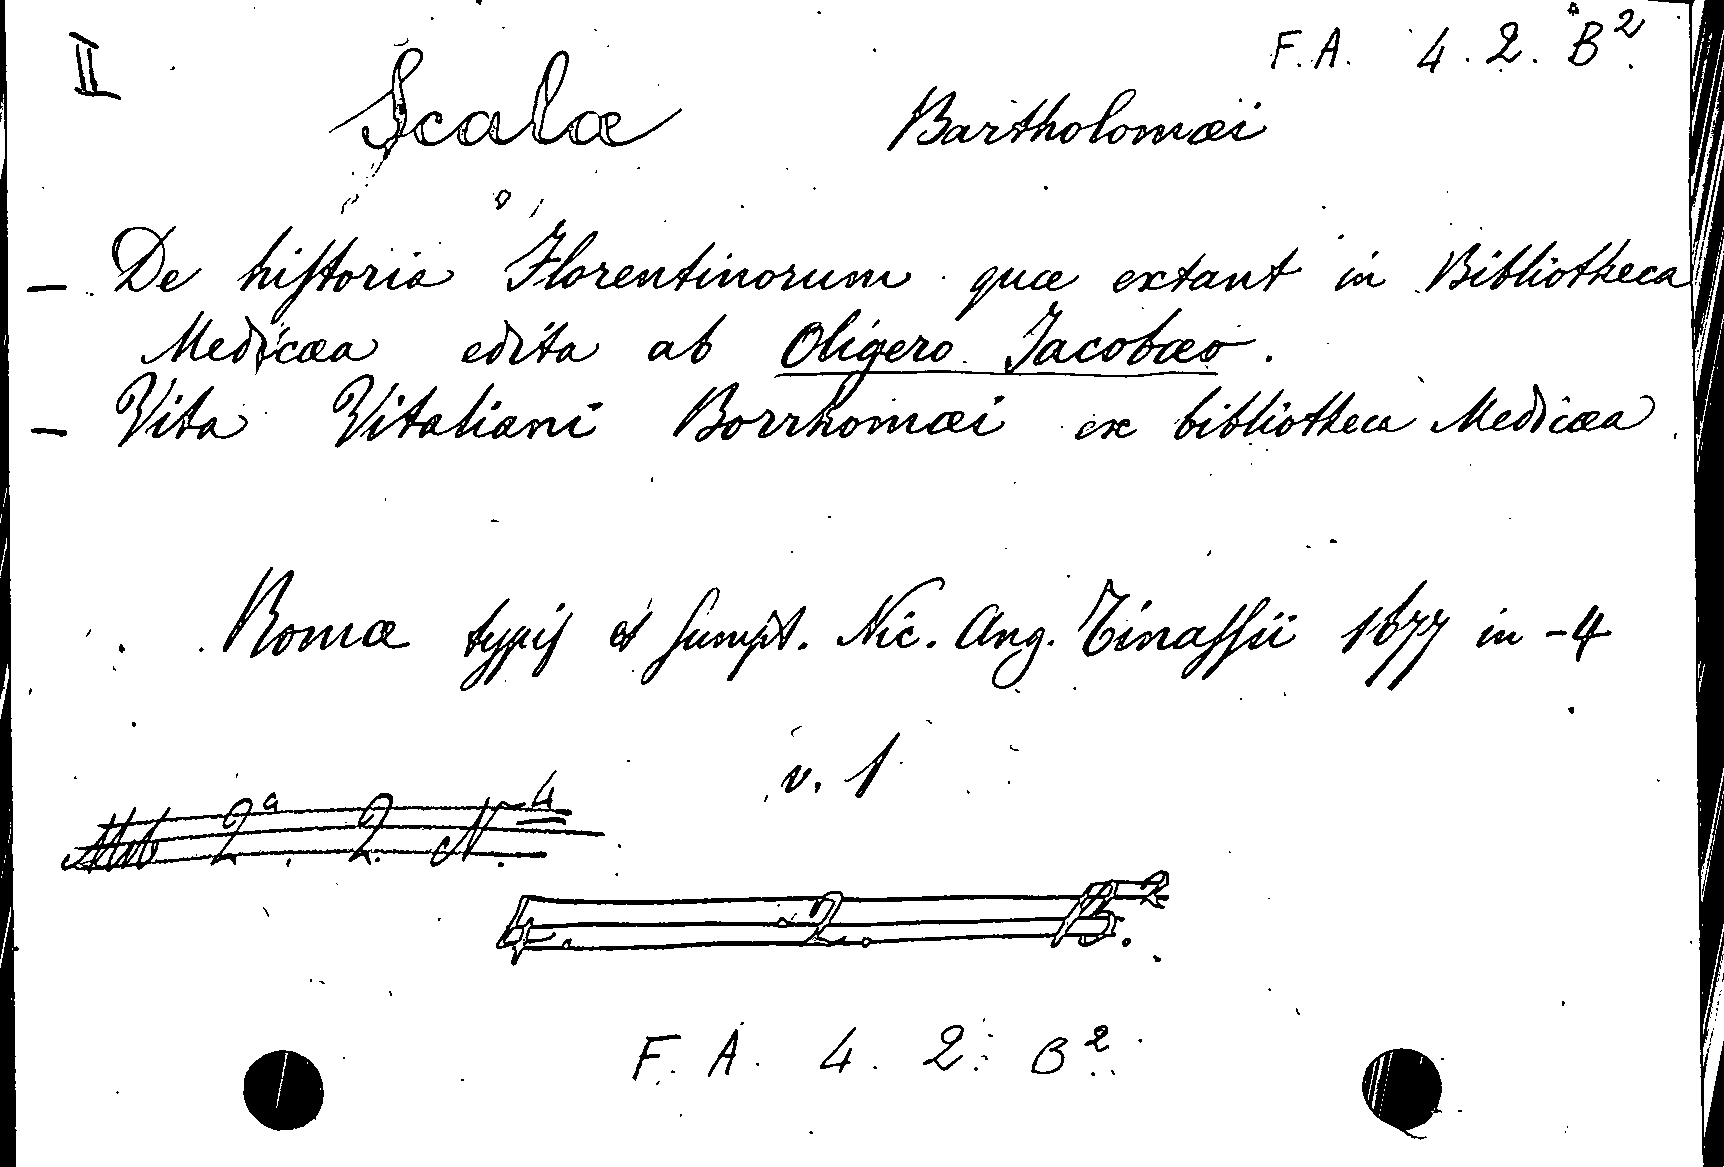 II
F. A. 4. 2. B².
Scalæ Bartholomæi
— De hiſtoria Florentinorum quæ extant in Bibliotheca
Medicæa edita ab Oligero Jacobæo.
— Vita Vitaliani Borrhomæi ex bibliotheca Medicæa.
Romæ typiſ et ſumpt. Nic. Ang. Tinaſſii 1677 in -4
v. 1
2ª. 2. N.4
4. 2. B.2
F. A. 4. 2. B².